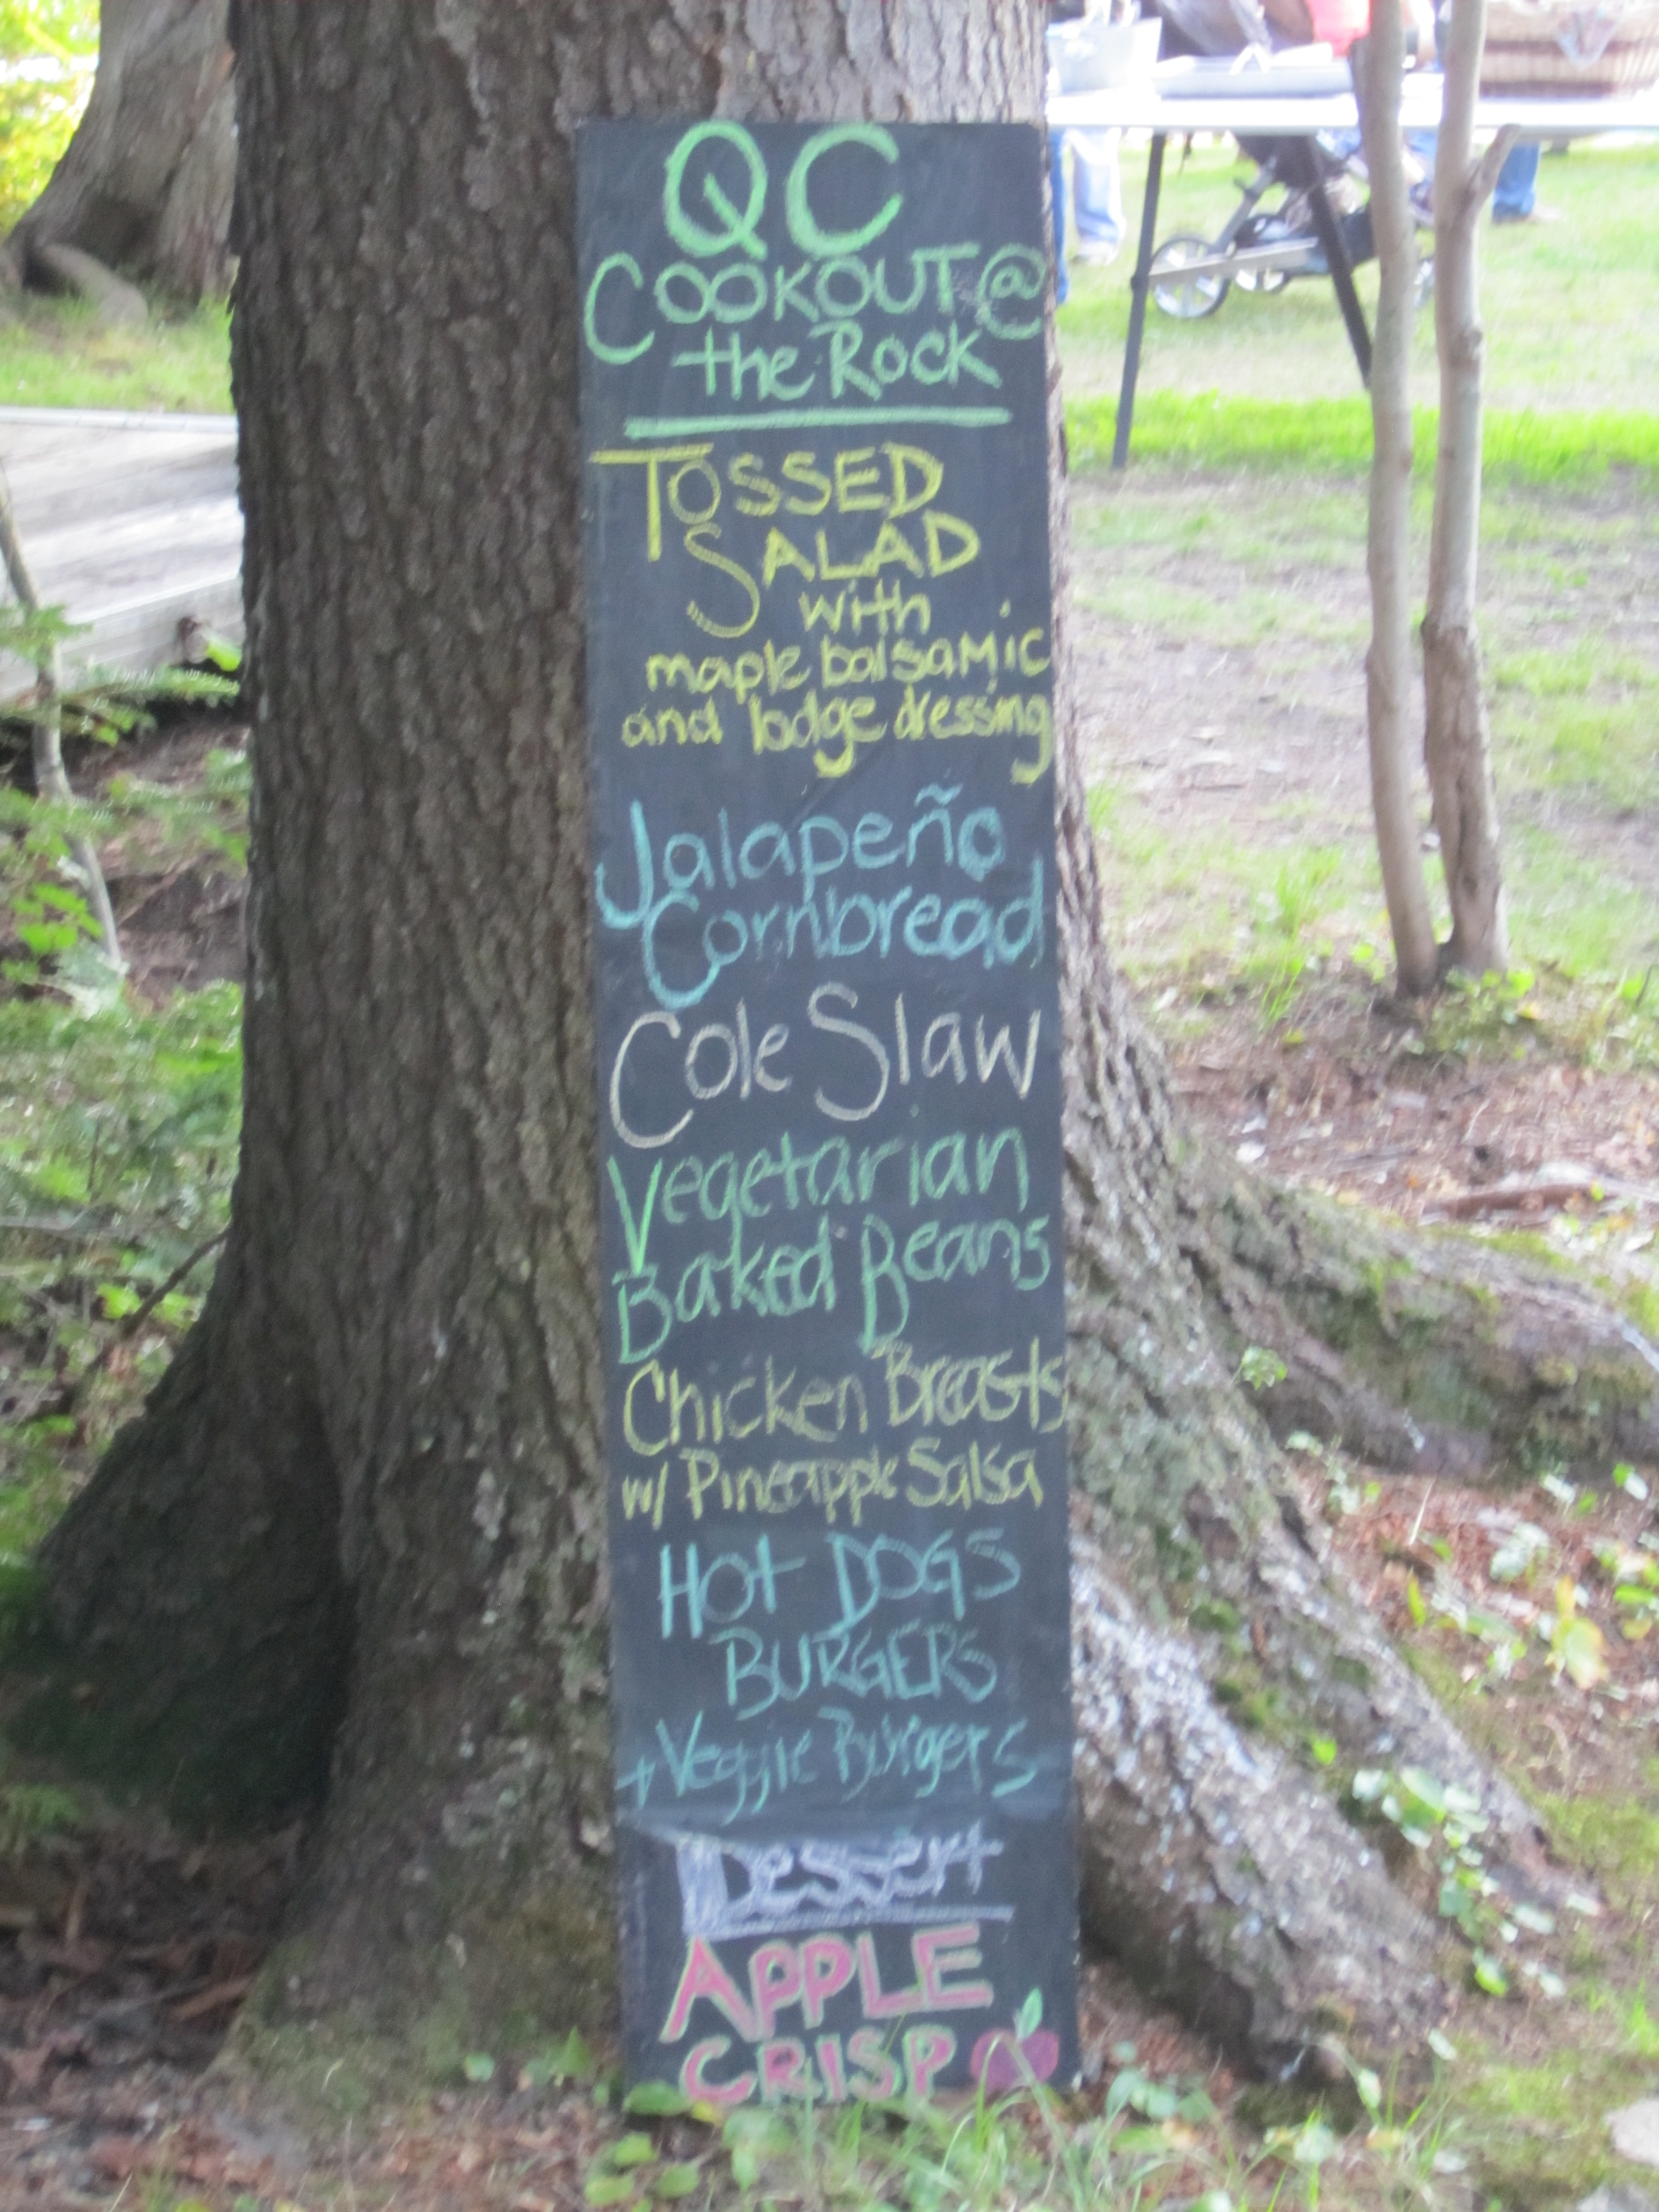 QC
COOKOUT @
the Rock
TOSSED
SALAD
with
maple balsamic
and lodge dressing
Jalapeño
Cornbread
Cole Slaw
Vegetarian
Baked Beans
Chicken Breasts
w/ Pineapple Salsa
HOt DOGS
BURGERS
+ Veggie Burgers
Dessert
APPLE
CRISP